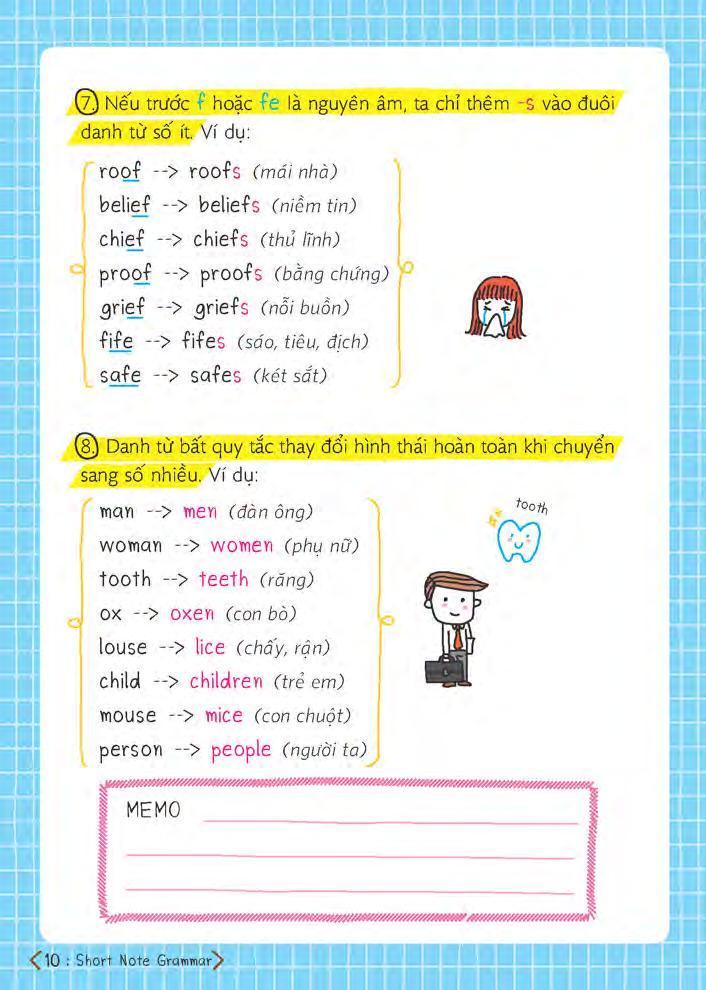 7. Nếu trước f hoặc fe là nguyên âm, ta chỉ thêm -s vào đuôi
danh từ số ít. Ví dụ:
roof --> roofs (mái nhà)
belief --> beliefs (niềm tin)
chief --> chiefs (thủ lĩnh)
proof --> proofs (bằng chứng)
grief --> griefs (nỗi buồn)
fife --> fifes (sáo, tiêu, địch)
safe --> safes (két sắt)
8. Danh từ bất quy tắc thay đổi hình thái hoàn toàn khi chuyển
sang số nhiều. Ví dụ:
man --> men (đàn ông)
woman --> women (phụ nữ)
tooth --> teeth (răng)
ox --> oxen (con bò)
louse --> lice (chấy, rận)
child --> children (trẻ em)
mouse --> mice (con chuột)
person --> people (người ta)
tooth
MEMO
10 : Short Note Grammar